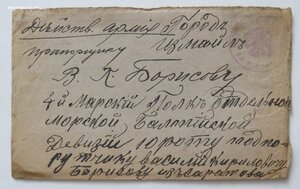 Действ. армiя Городъ
Измаилъ
прапорщику
В. К. Борисову
4й Марскiй Полкъ Отдельной
Морской Балтийской
Девизiи 10 роту подпо-
ручику Василий Кириловичу
Борисову изъ Саратова